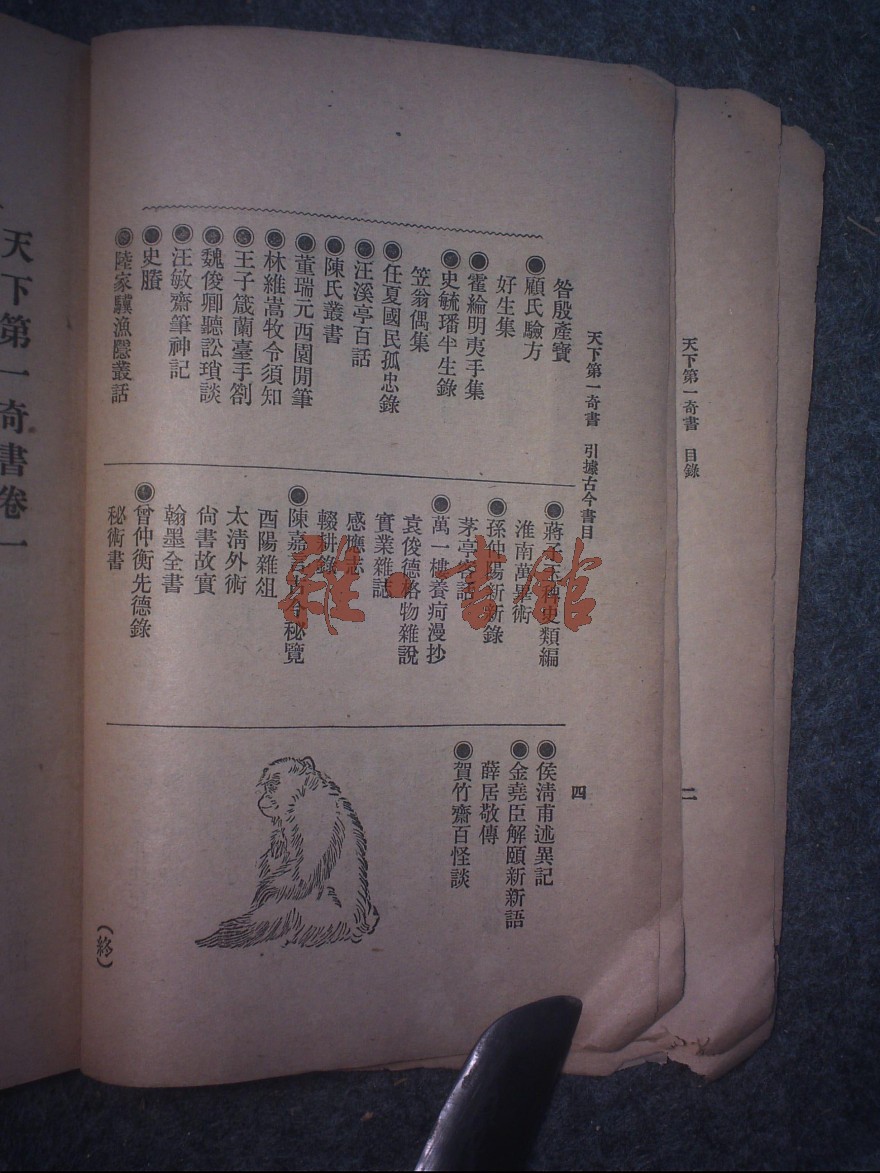 天下第一奇書 目錄
二
天下第一奇書 引據古今書目
四
昝殷產寶
◉顧氏驗方
好生集
◉霍綸明夷手集
◉史毓璠半生錄
笠翁偶集
◉任夏國民孤忠錄
◉汪溪亭百話
◉陳氏叢書
◉董瑞元西園閒筆
◉林維嵩牧令須知
◉王子箴蘭臺手劄
◉魏俊卿聽訟瑣談
◉汪敏齋筆神記
◉史賸
◉陸家驥漁隱叢話
◉蔣子正稗史類編
淮南萬畢術
◉孫仲陽新新錄
茅亭客話
◉萬一樓養疴漫抄
袁俊德格物雜說
實業雜誌
感應志
輟耕錄
◉陳嘉古今秘覽
酉陽雜俎
太清外術
尙書故實
翰墨全書
◉曾仲衡先德錄
秘術書
◉侯清甫述異記
◉金堯臣解頤新新語
薛居敬傳
◉賀竹齋百怪談
（終）
天下第一奇書卷一
雜·書館